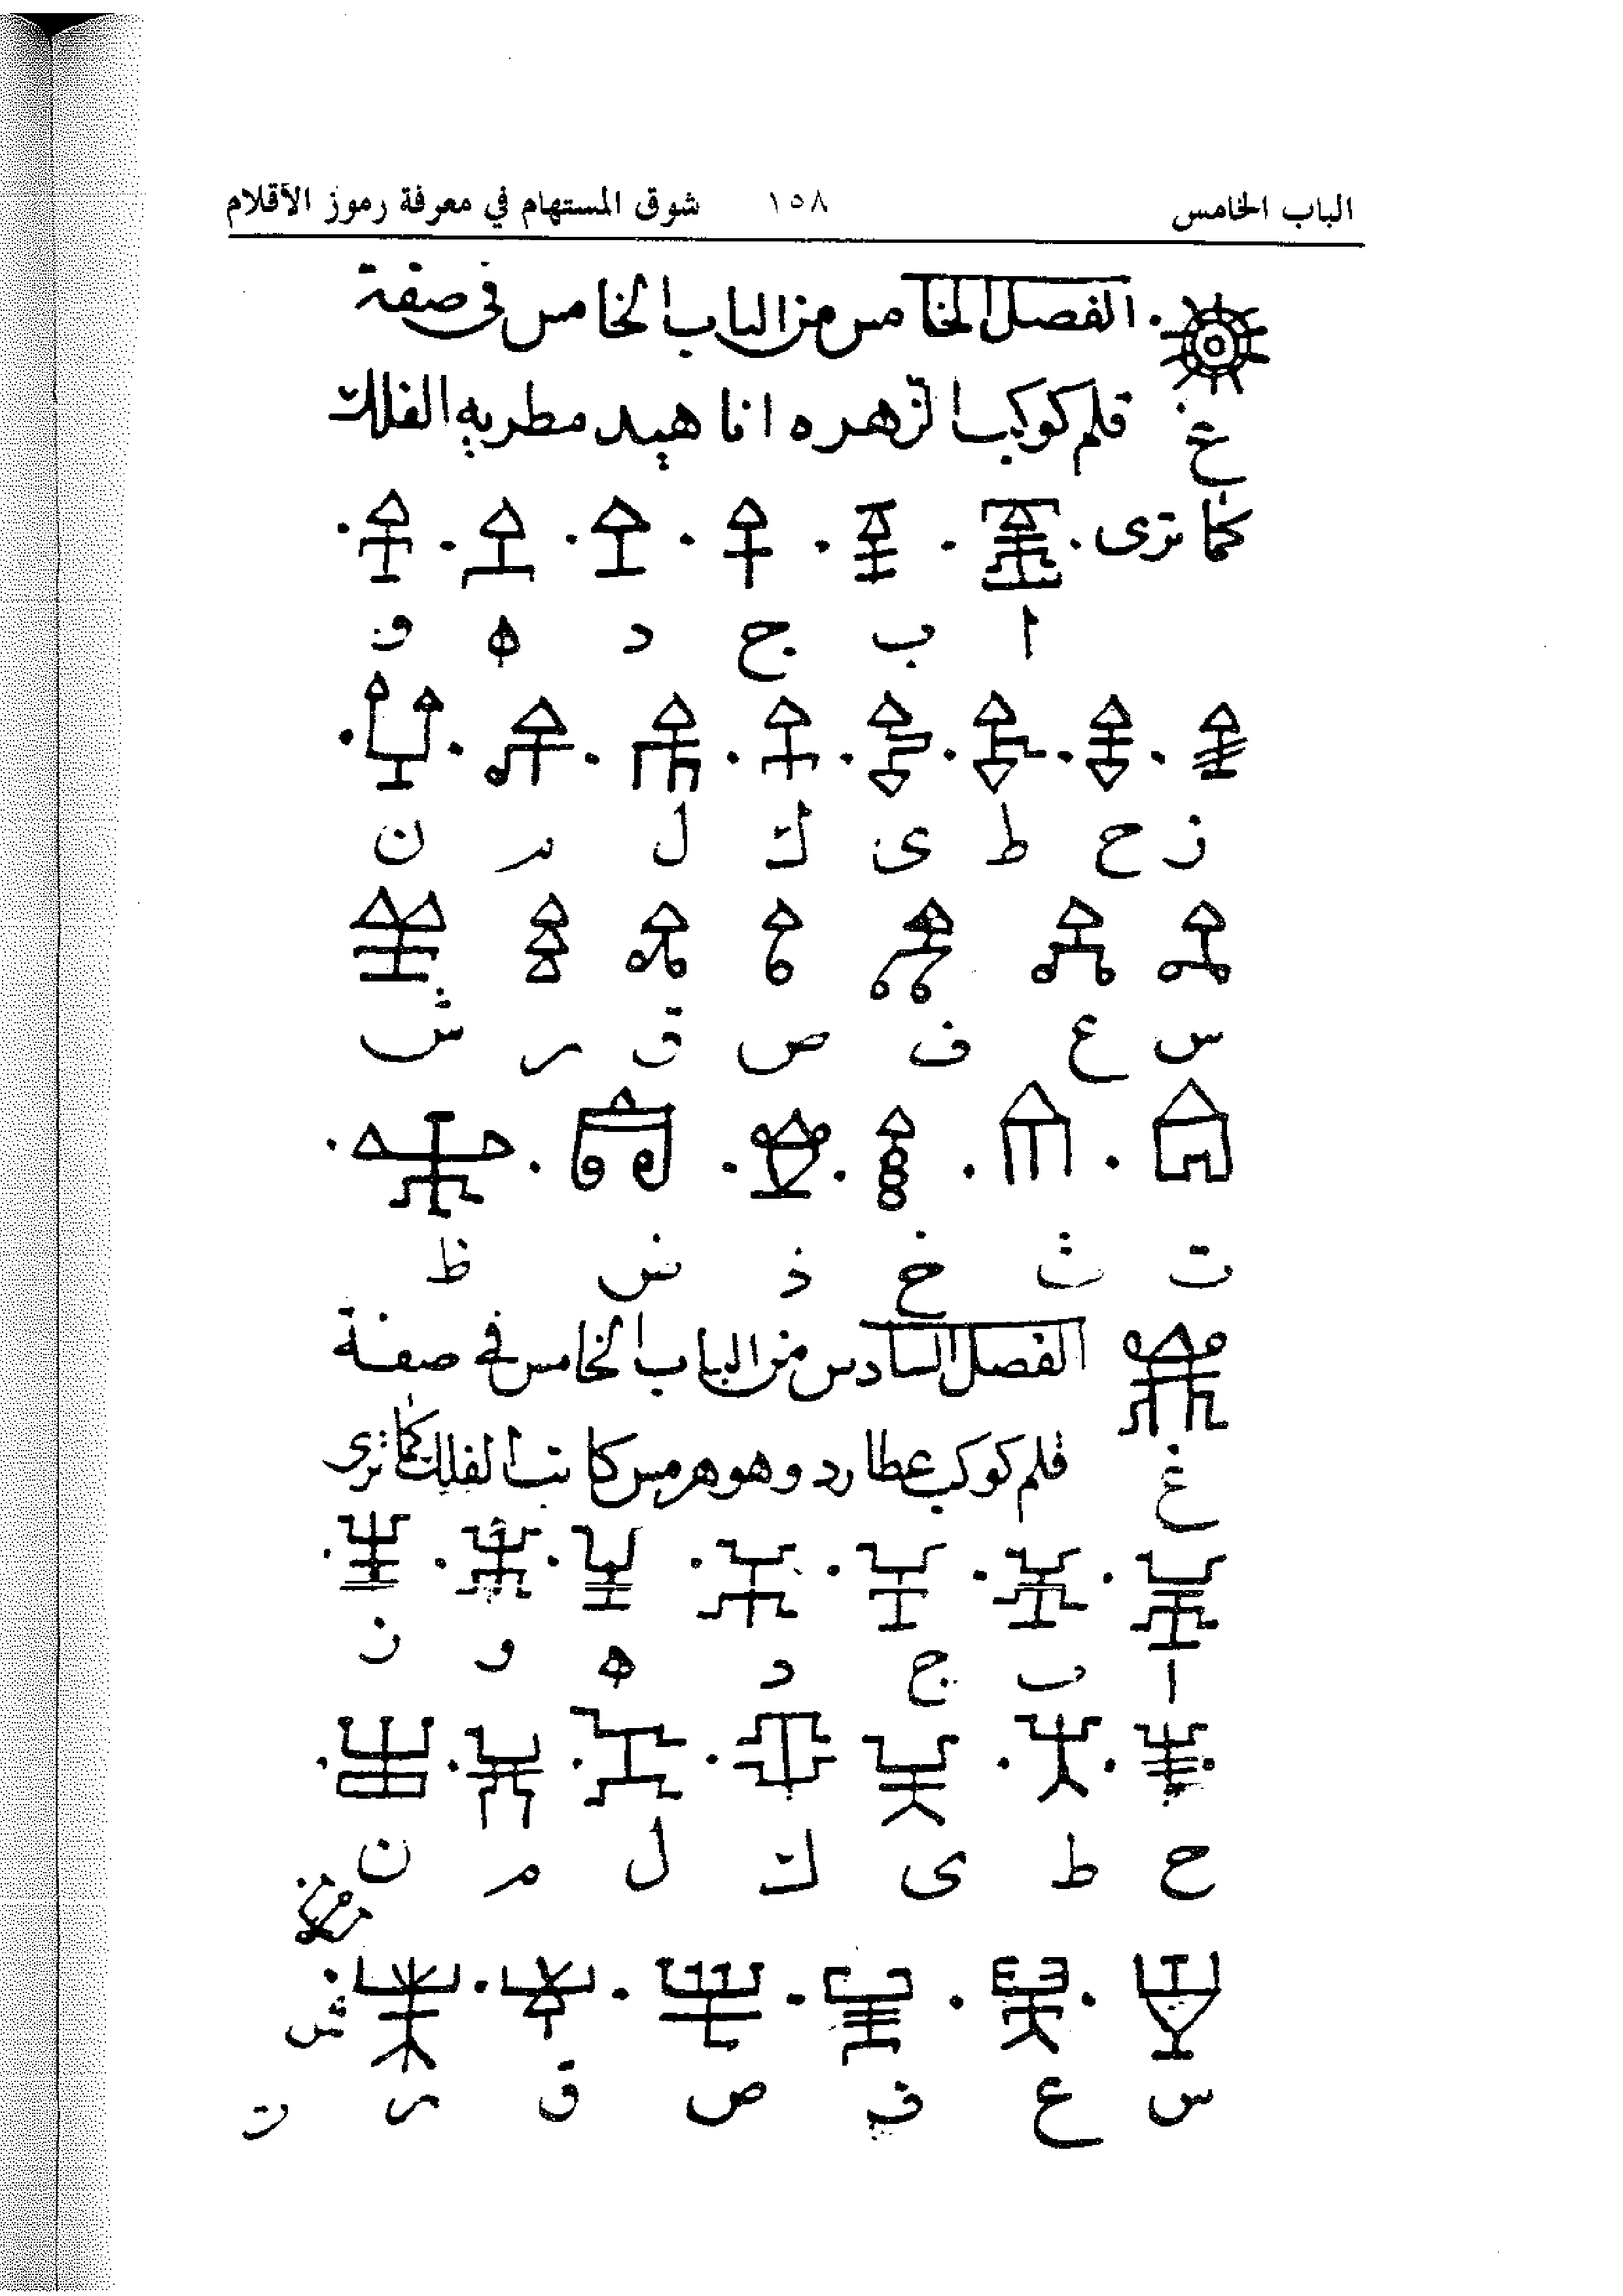 الباب الخامس ١٥٨ شوق المستهام في معرفة رموز الأقلام
الفصل الخامس من الباب الخامس في صفة
قلم كوكب الزهره اناهيد مطربه الفلك
غ
كما ترى
ا ب ج د ه و
ز ح ط ى ك ل م ن
س ع ف ص ق ر ش
ت ث خ ذ ض ظ
الفصل السادس من الباب الخامس في صفة
قلم كوكب عطارد وهو هرمس كاتب الفلك كما ترى
غ
ا ب ج د ه و ز
ح ط ى ك ل م ن
س ع ف ص ق ر ش ت